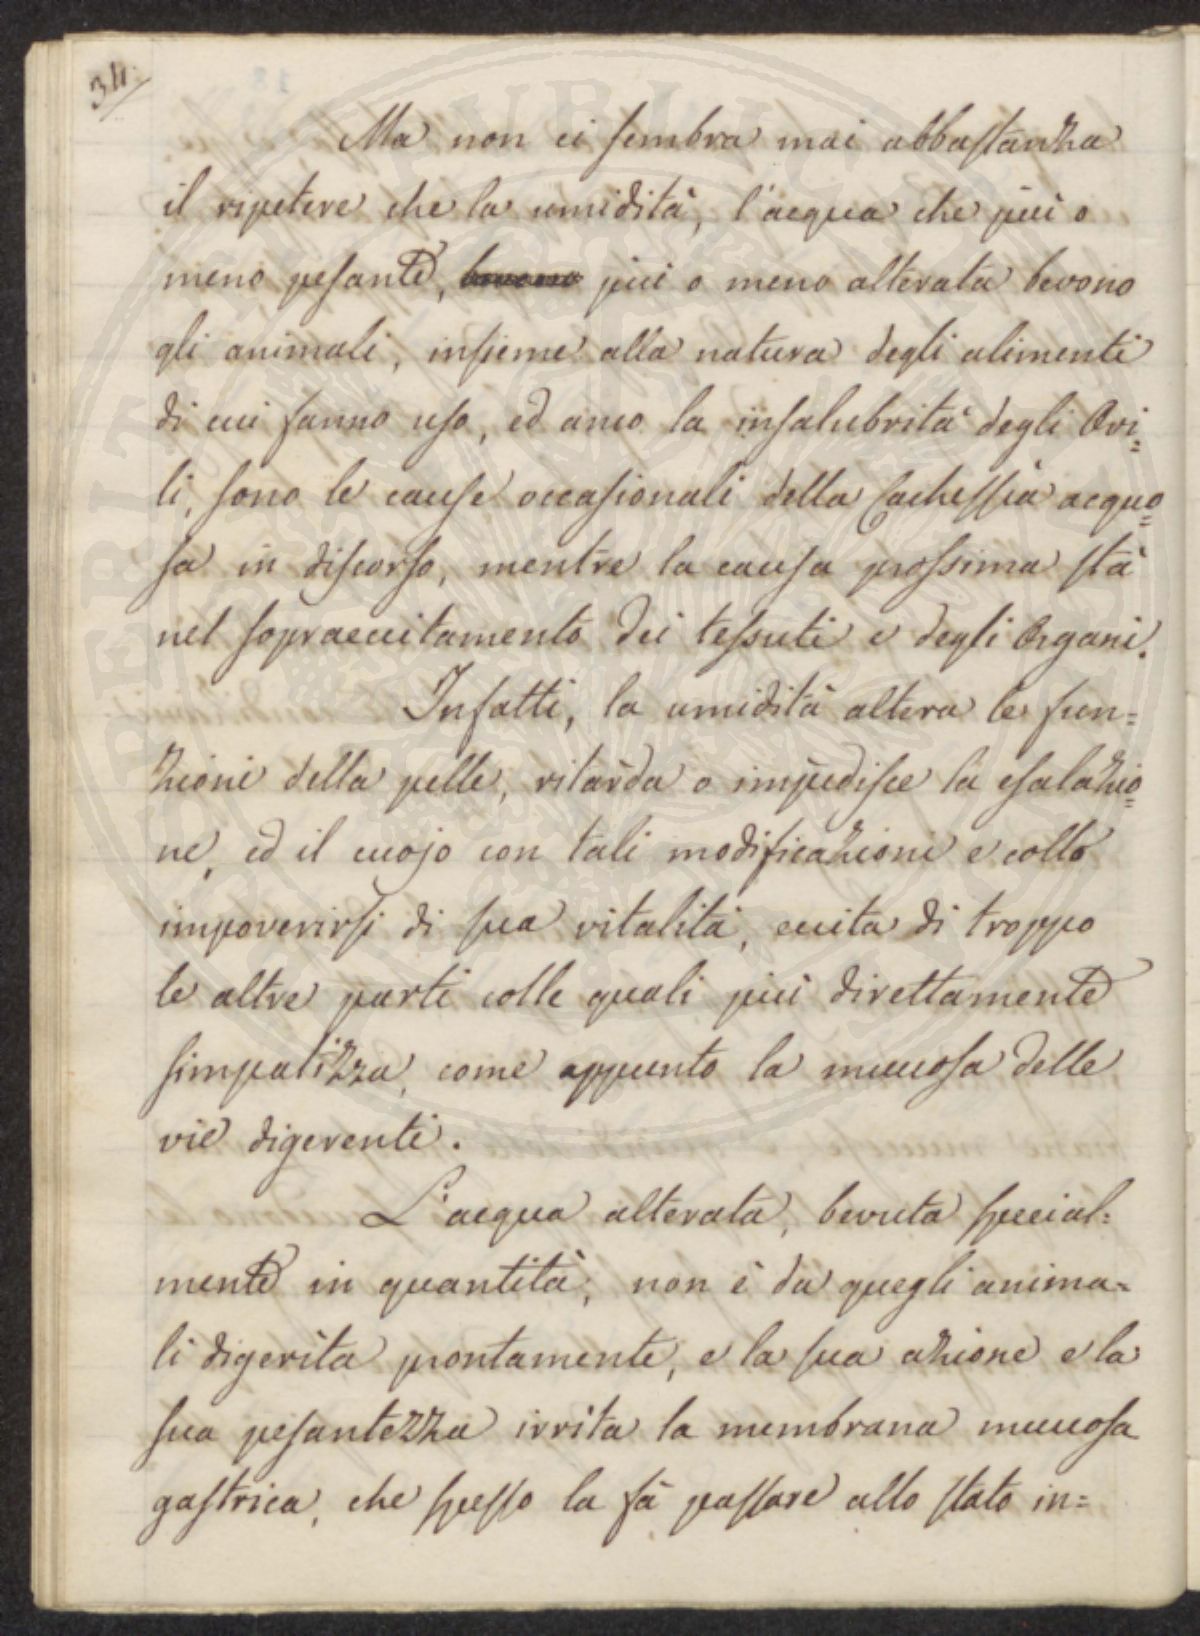 34.
Ma non ci sembra mai abbastanza
il ripetere che la umidità, l'acqua che più o
meno pesante, bevono più o meno alterata bevono
gli animali, insieme alla natura degli alimenti
di cui fanno uso, ed anco la insalubrità degli Ovi=
li, sono le cause occasionali della Cachessia acquo=
sa in discorso, mentre la causa prossima stà
nel sopraeccitamento dei tessuti e degli Organi.
Infatti, la umidità altera le fun=
zioni della pelle, ritarda o impedisce la esalazio=
ne, ed il cuojo con tali modificazioni e collo
impoverirsi di sua vitalità, eccita di troppo
le altre parti colle quali più direttamente
simpatizza, come appunto la muccosa delle
vie digerenti.
L'acqua alterata, bevuta special=
mente in quantità, non è da quegli anima=
li digerita prontamente, e la sua azione e la
sua pesantezza irrita la membrana muccosa
gastrica, che spesso la fà passare allo stato in=